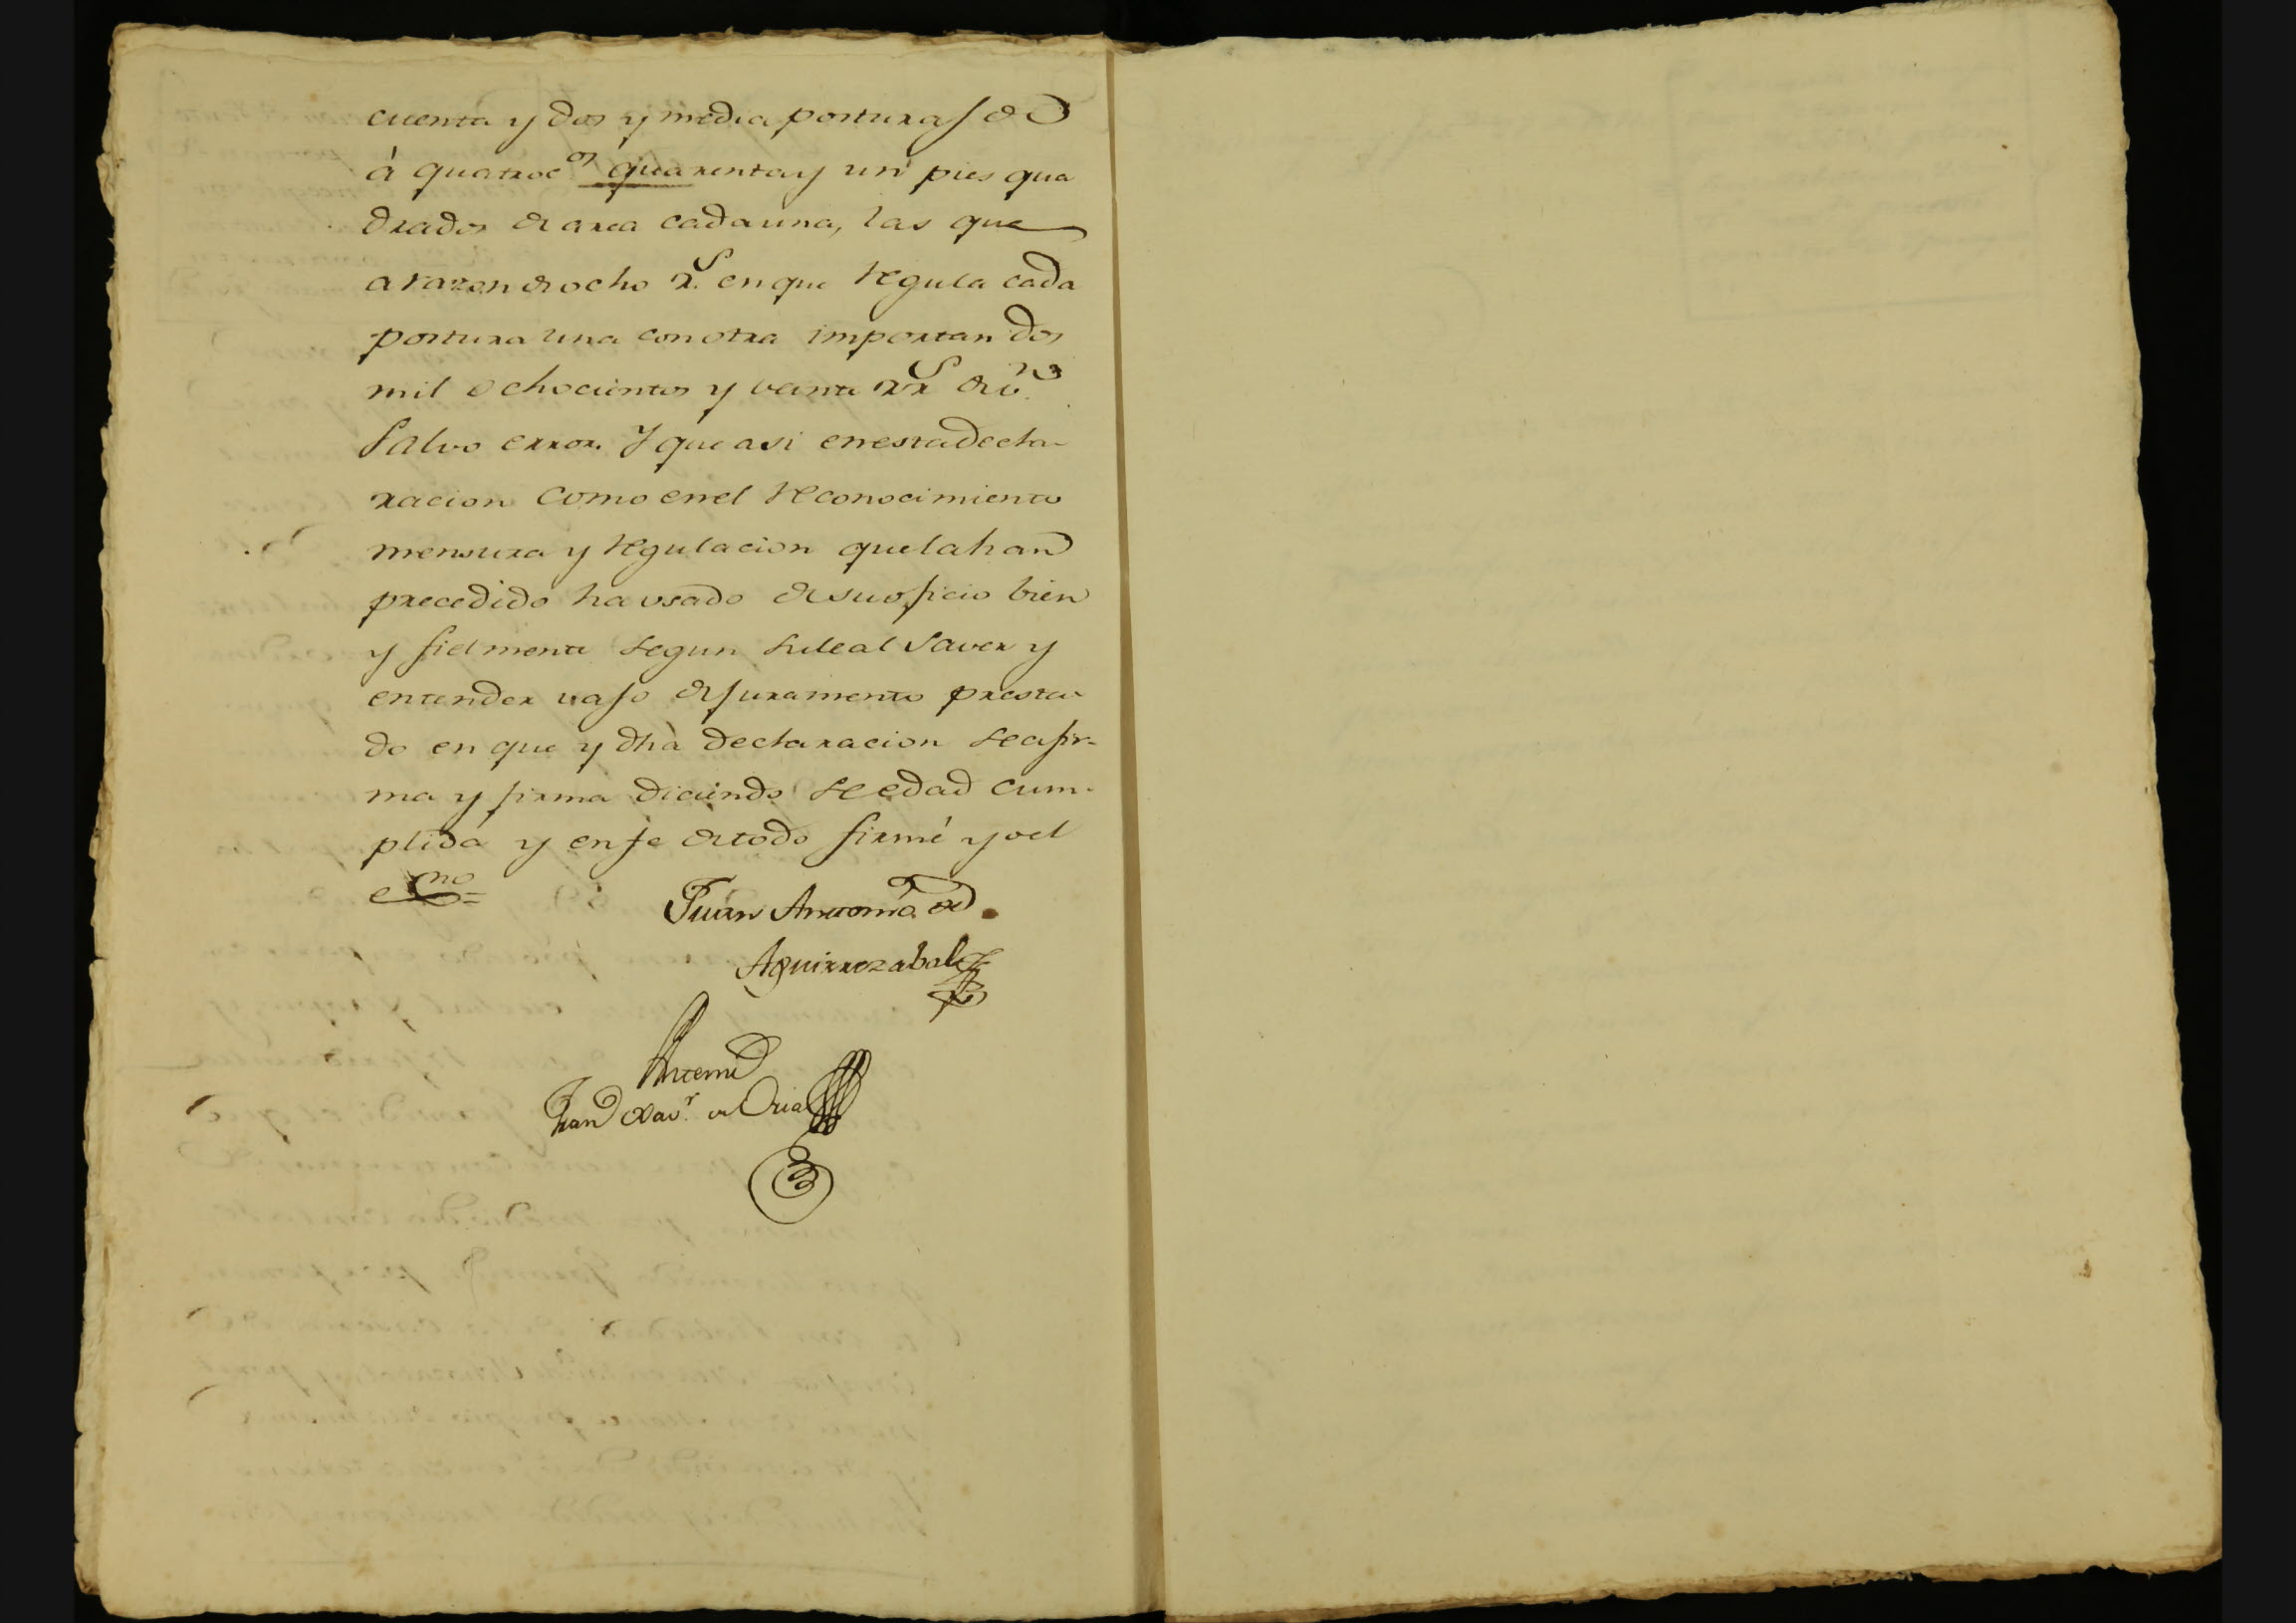 cuenta y dos y media posturas de
à quatroc.os quarenta y un pies qua
drados de area cada una, las que
a razon de ocho r.s en que regula cada
postura una con otra importan dos
mil ochocientos y veinte rr.s de v.n
salvo error. Y que asi en esta decla-
racion como en el reconocimiento
mensura y regulacion que la han
precedido ha usado de su oficio bien
y fielmente segun su leal saver y
entender vajo de juramento presta-
do en que y dha declaracion se afir-
ma y firma diciendo ser de edad cum-
plida y en fe de todo firmé yo el
esno=
Juan Antonio de
Aguirrezabal
Antemi
Juan Xav.r de Oria